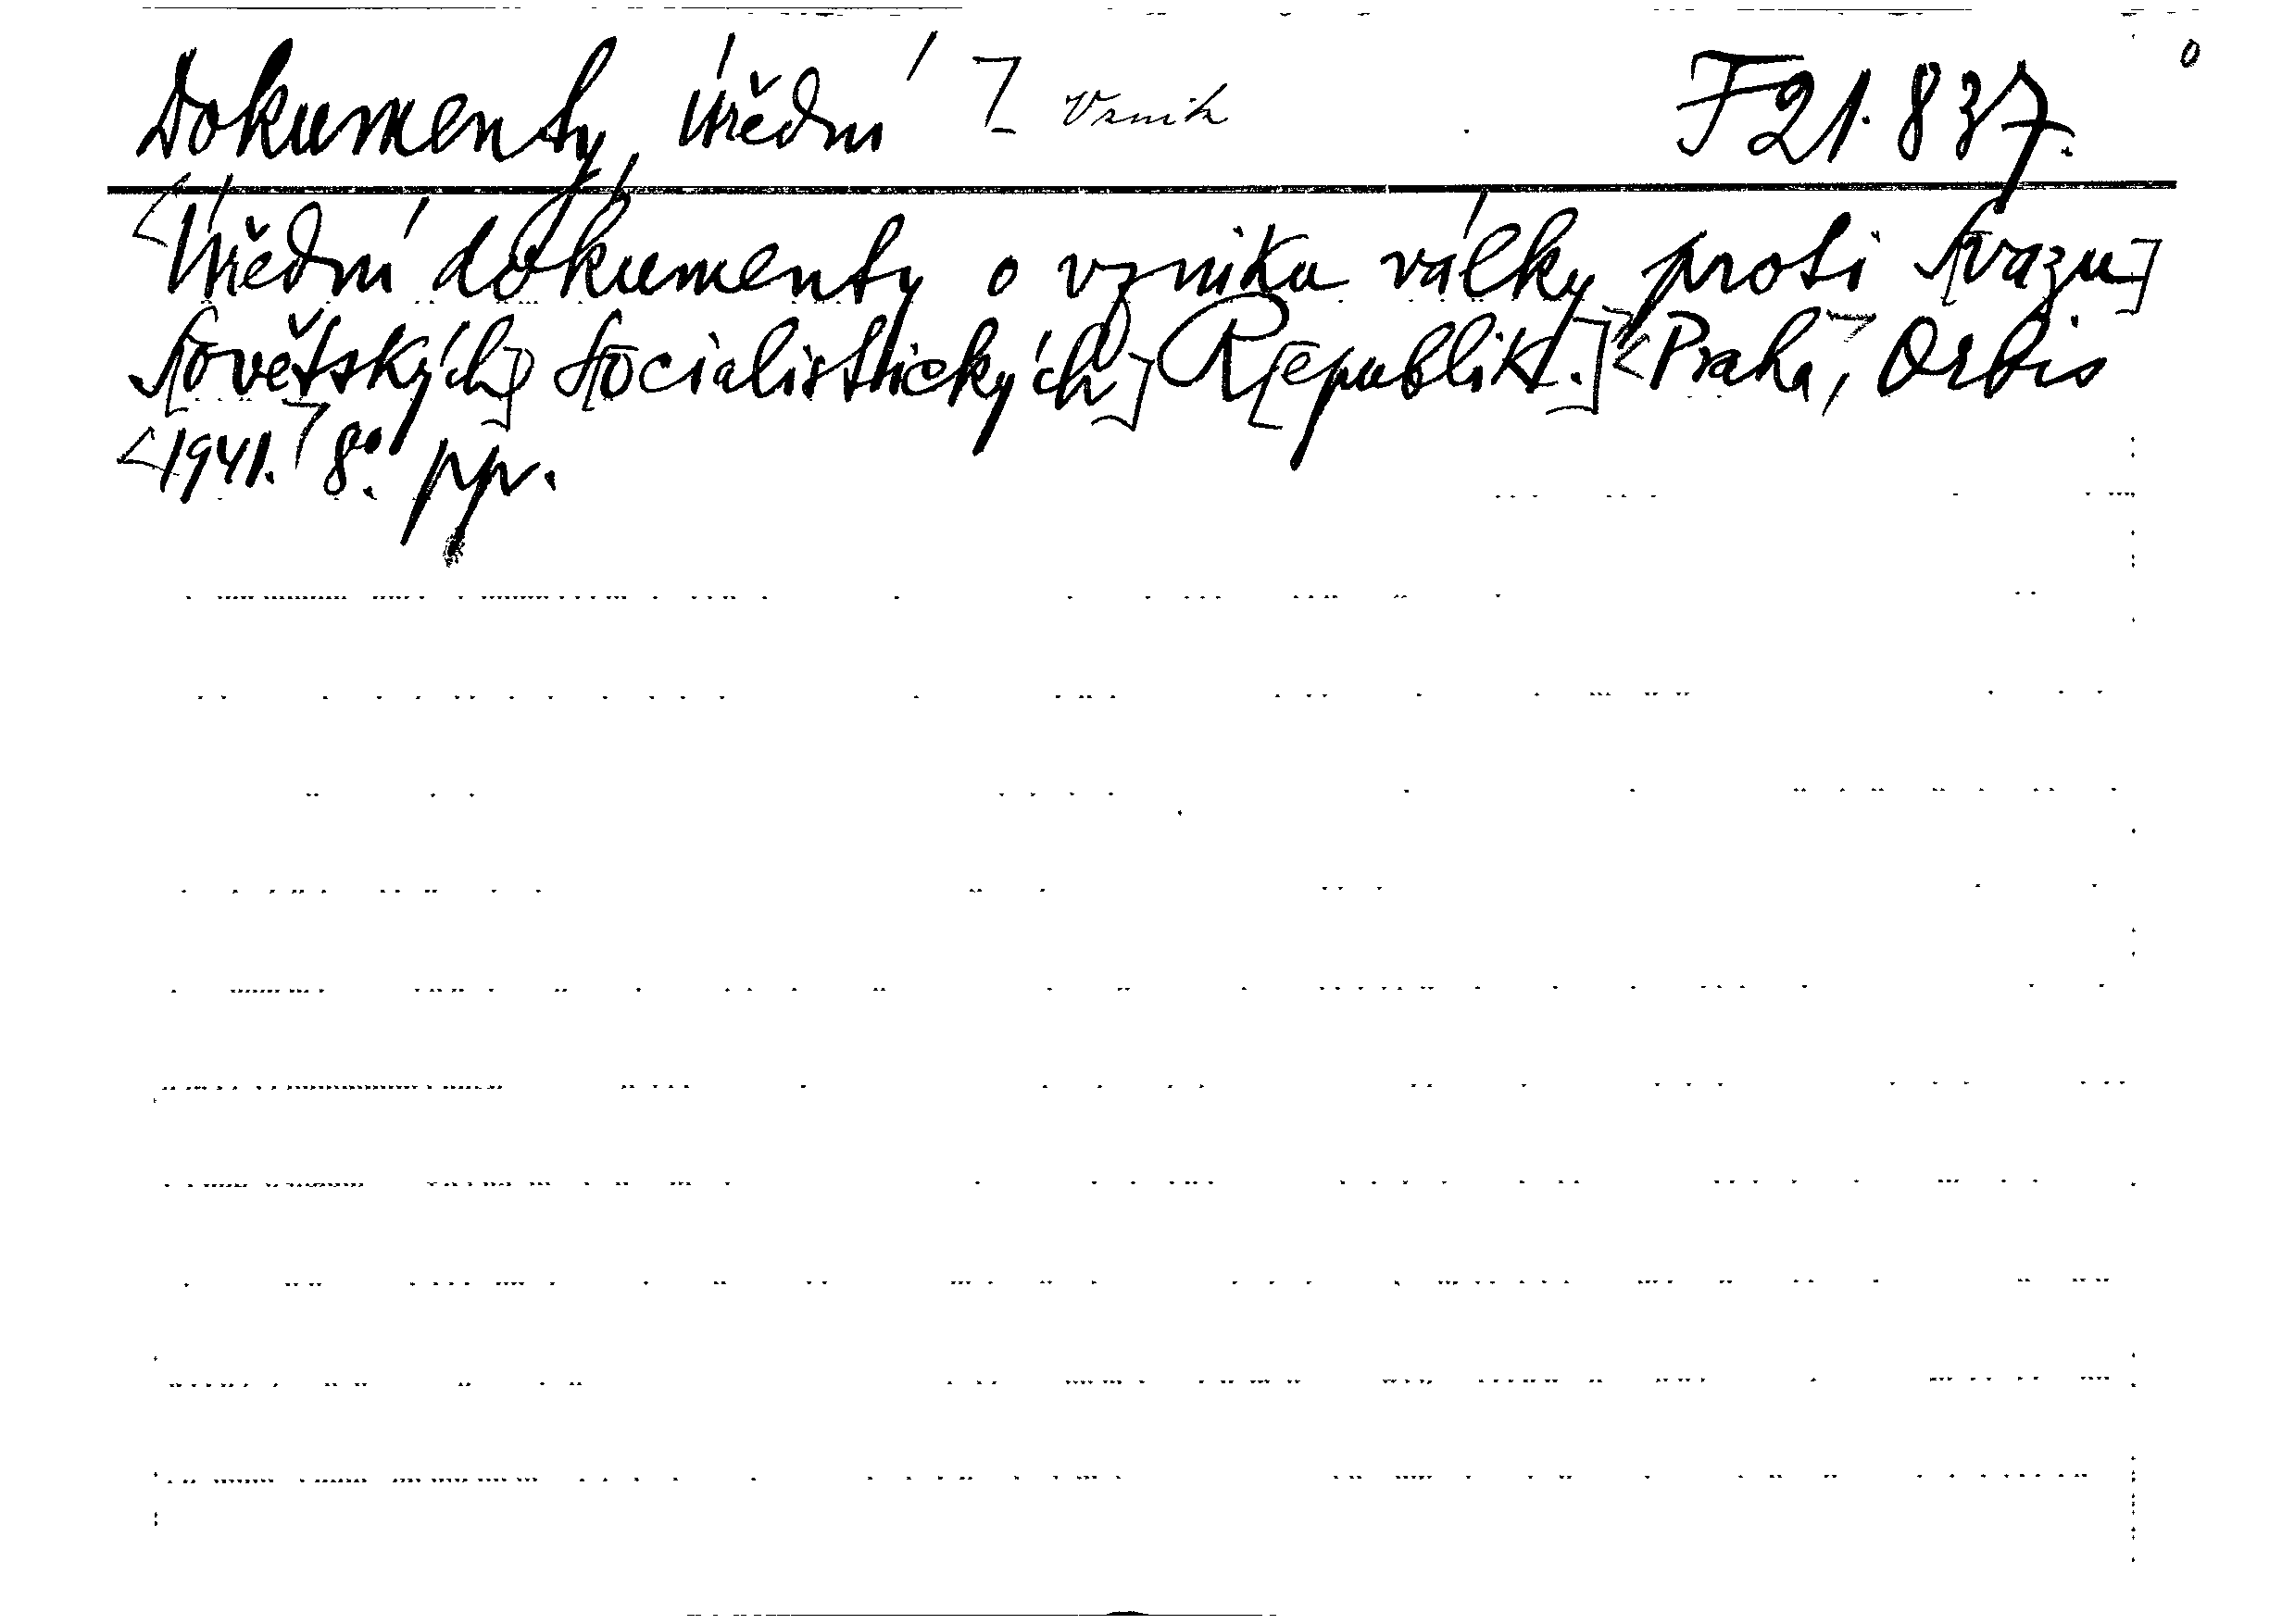 Dokumenty, úřední Vznik F 21.837.
Úřední dokumenty o vzniku války proti S[vazu]
S[ovětských] S[ocialistických] R[epublik.] Praha, Orbis
1941. 8°. pp.